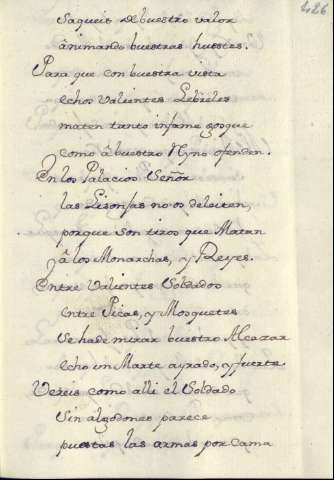 426
saqueis de buestro valor
ânimando buestras huestes.
Para que con buestra vista
echos Valientes Lebreles
maten tanto infame gosque
como â buestro Nyno ofenden.
En los Palacios Señor
las Lisonjas no os deleiten,
porque son tiros que Matan
â los Monarchas, y Reyes.
Entre Valientes Soldados
entre Picas, y Mosquetes
se hade mirar buestro Alcazar
echo un Marte ayrado, y fuerte.
Vereis como alli el Soldado
Sin algodones parece
puestas las armas por cama